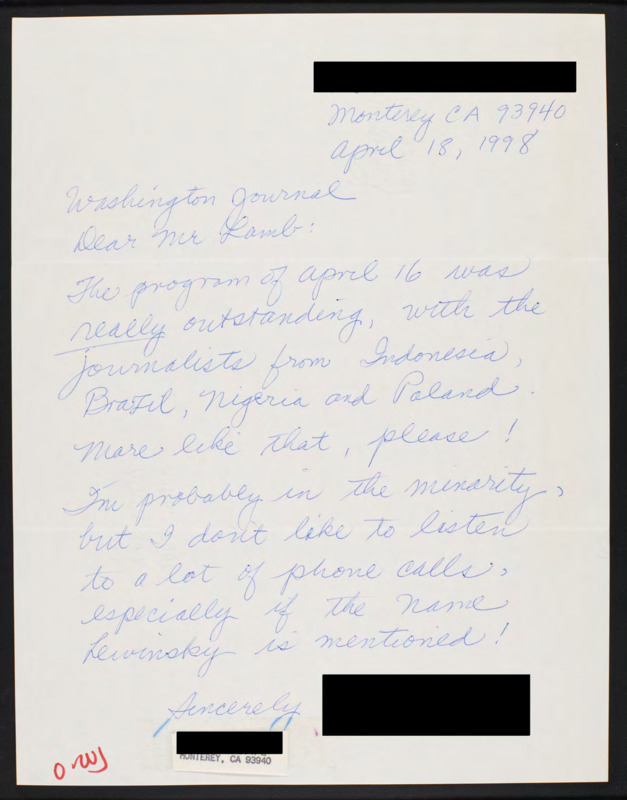 Monterey CA 93940
April 18, 1998
Washington Journal
Dear Mr Lamb:
The program of April 16 was
really outstanding, with the
journalists from Indonesia,
Brazil, Nigeria and Poland.
More like that, please!
I'm probably in the minority,
but I don't like to listen
to a lot of phone calls,
especially if the name
Lewinsky is mentioned!
Sincerely
MONTEREY, CA 93940